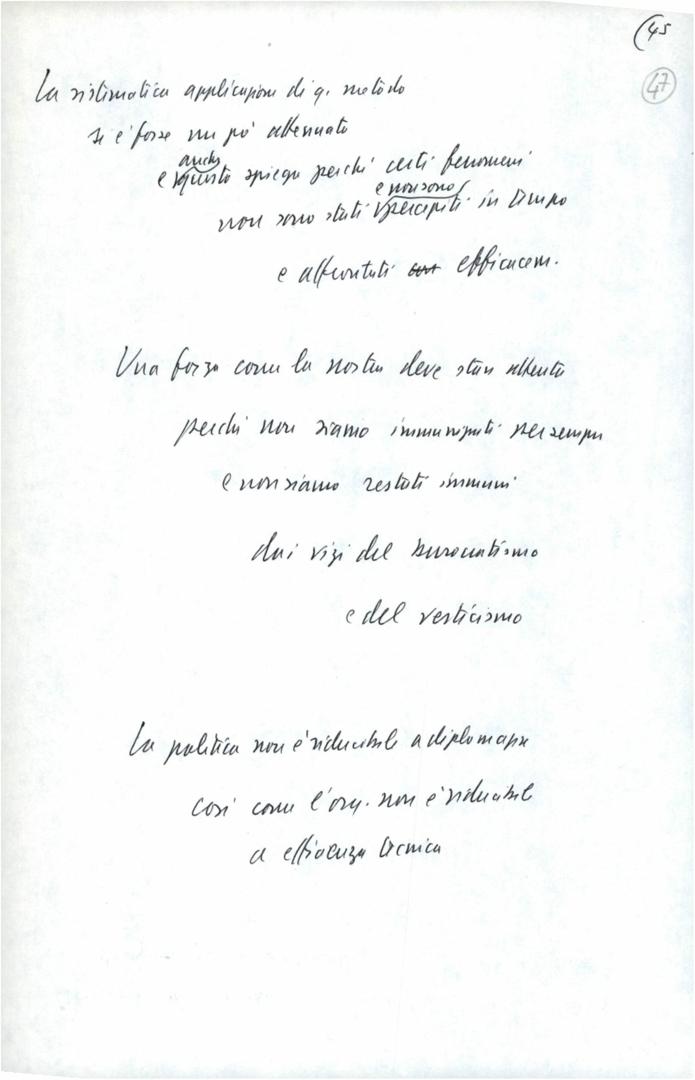 (45
47
La sistematica applicazione di q. metodo
si è forse un po' attenuata
e anche questo spiega perché certi fenomeni
non sono stati e non sono percepiti in tempo
e affrontati efficacem.
Una forza come la nostra deve stare attenta
perché non siamo immunizzati per sempre
e non siamo restati immuni
dai vizi del burocratismo
e del verticismo
La politica non è riducibile a diplomazia
così come l'org. non è riducibile
a efficienza tecnica